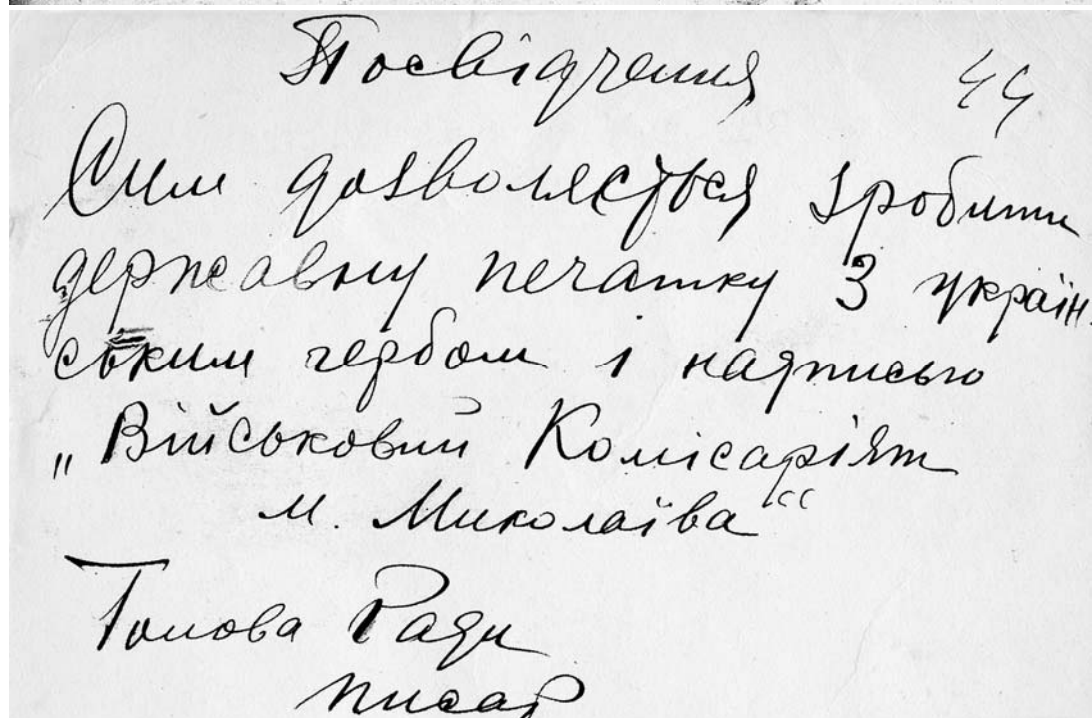 Посвідчення 44
Сим дозволяється зробити
державну печатку З україн
ським гербом і надписью
„Військовий Комісаріят
м. Миколаїва“
Голова Ради
писар